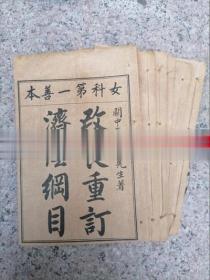 女科第一善本
關中先生著
改重訂
濟綱目